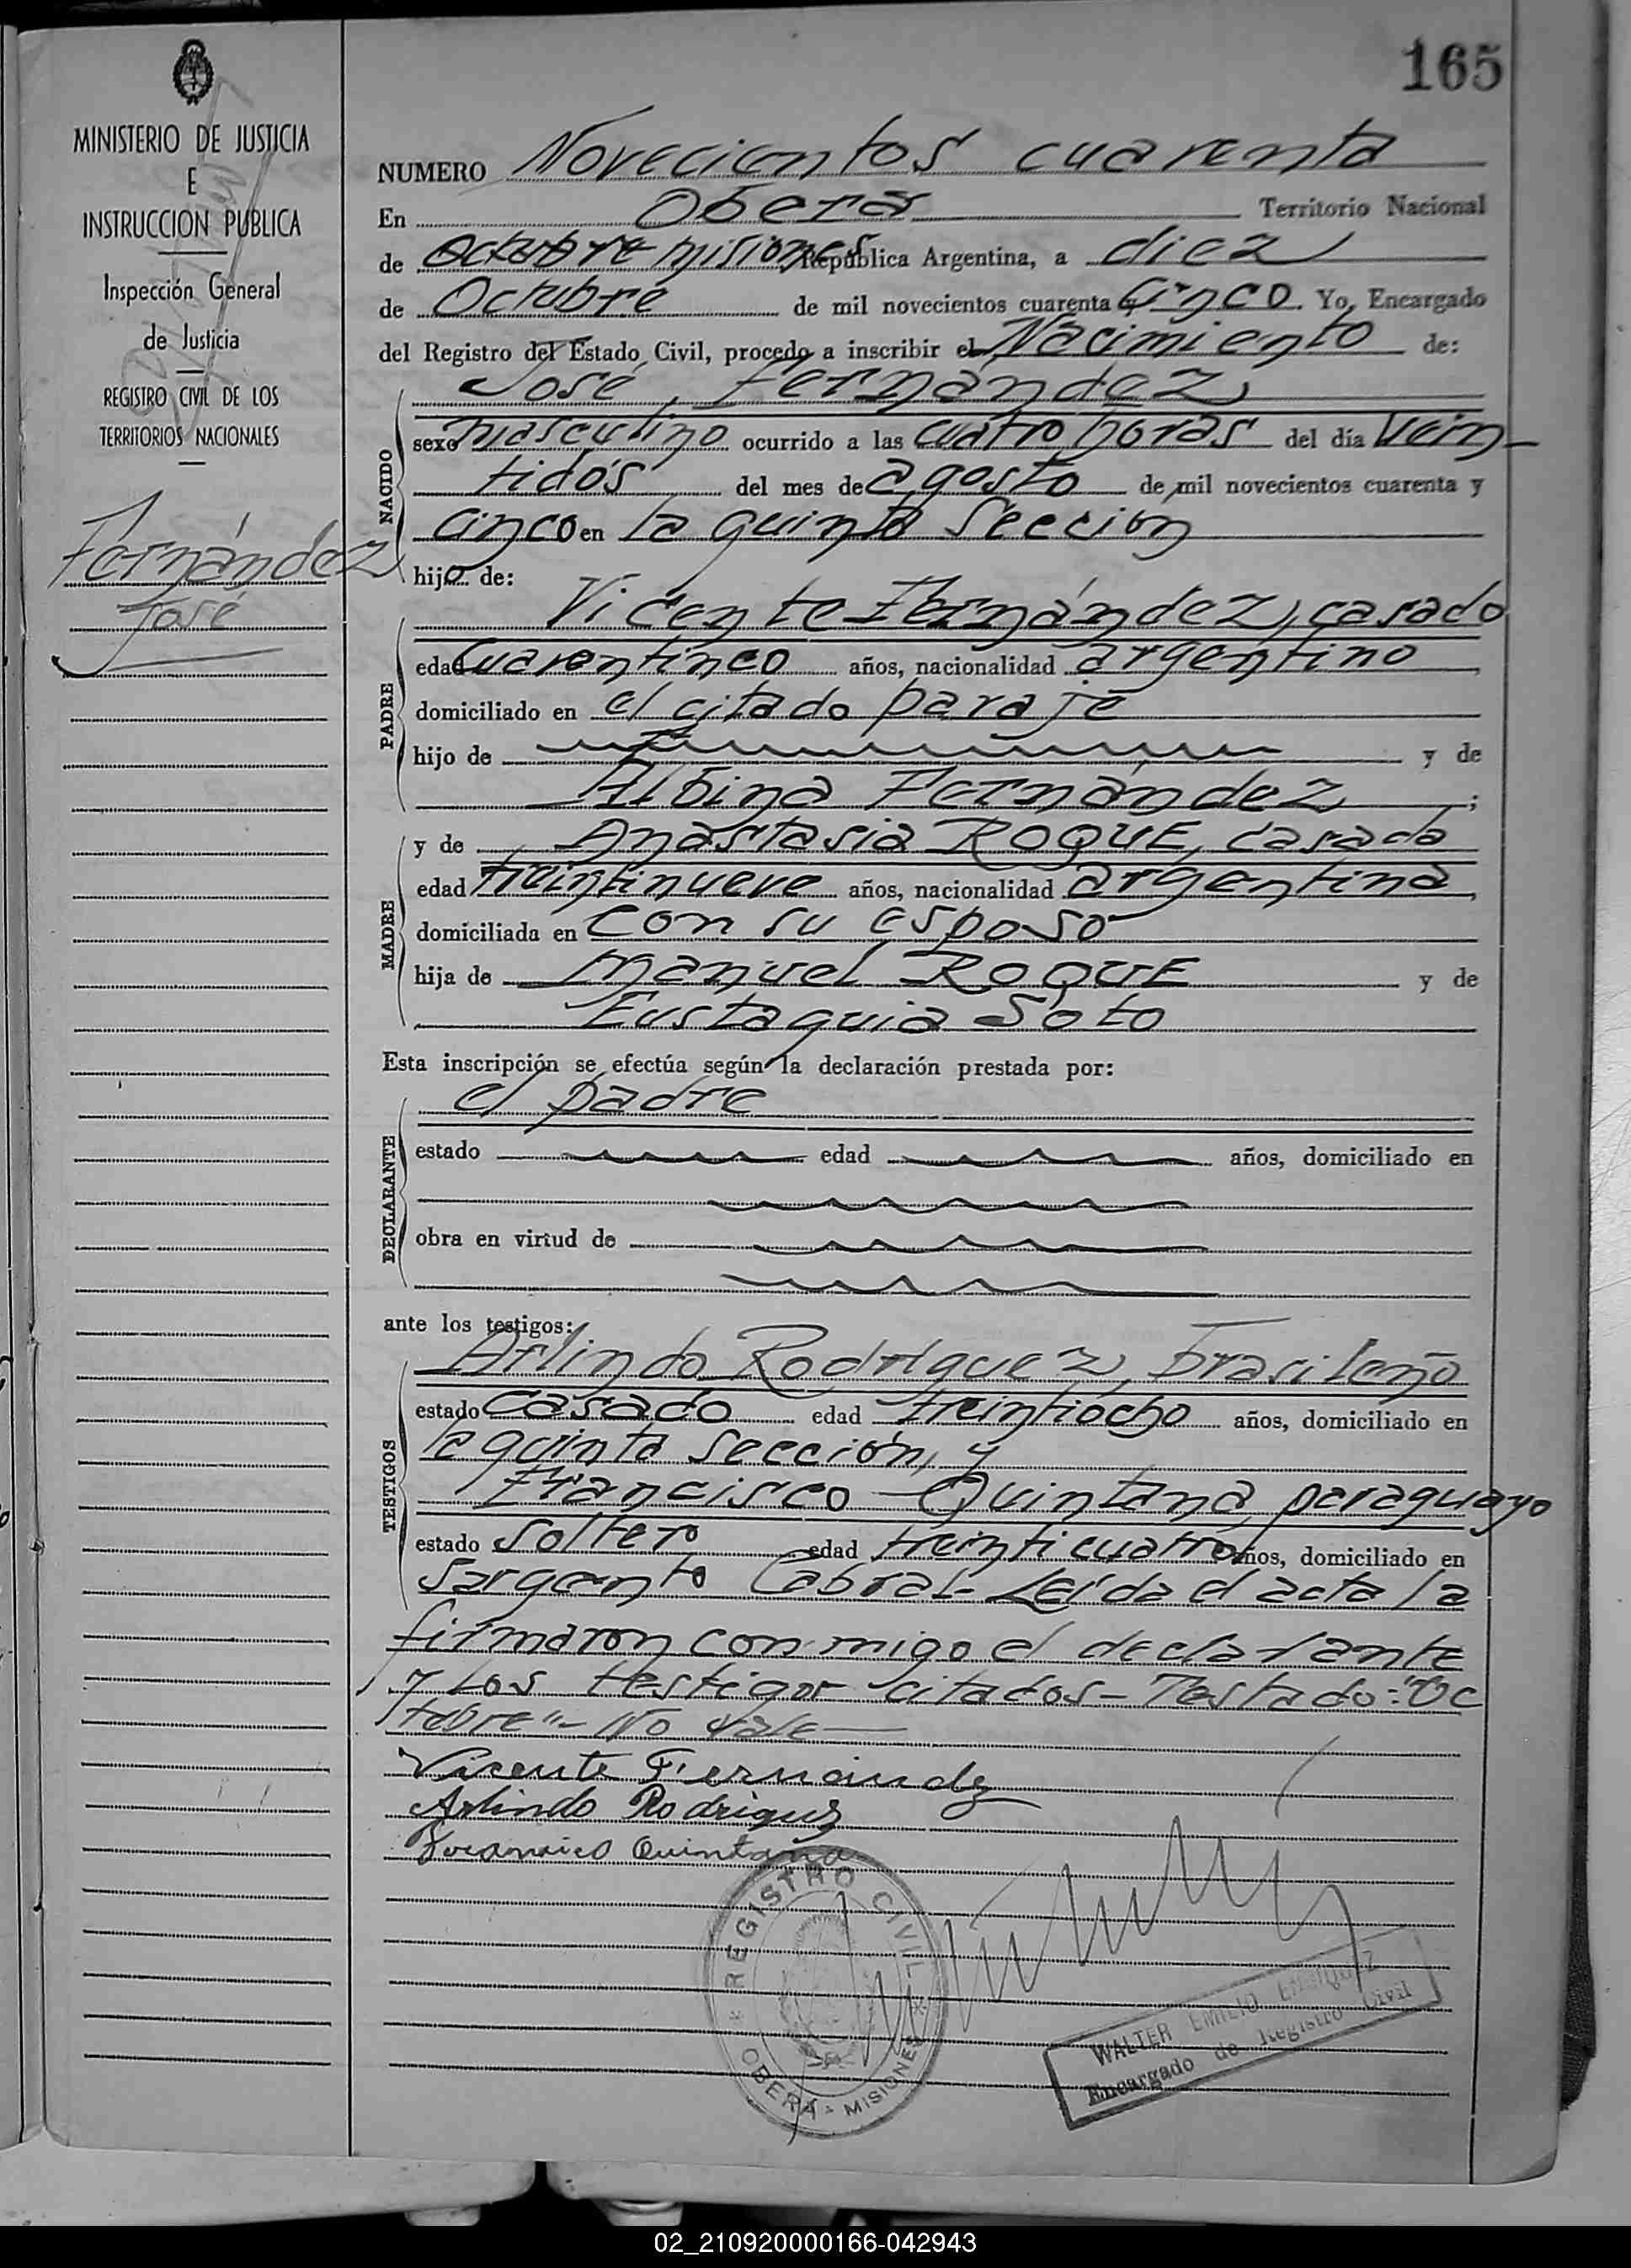 165
MINISTERIO DE JUSTICIA
E
INSTRUCCION PUBLICA
Inspección General
de Justicia
REGISTRO CIVIL DE LOS
TERRITORIOS NACIONALES
Fernández
José
NUMERO Novecientos cuarenta
En Oberá Territorio Nacional
de Octubre Misiones República Argentina, a diez
de Octubre de mil novecientos cuarenta y cinco. Yo, Encargado
del Registro del Estado Civil, procedo a inscribir el Nacimiento de:
José Fernández
NACIDO
sexo masculino ocurrido a las cuatro horas del día vein-
tidós del mes de agosto de mil novecientos cuarenta y
cinco en la quinta Sección
hijo de:
Vicente Fernández, casado
PADRE
edad cuarentinco años, nacionalidad argentino
domiciliado en el citado paraje
hijo de y de
Albina Fernandez ;
y de Anastasia ROQUE, casada
MADRE
edad treintinueve años, nacionalidad argentina,
domiciliada en con su esposo
hija de Manuel ROQUE y de
Eustaquia Soto
Esta inscripción se efectúa según la declaración prestada por:
el padre
DECLARANTE
estado edad años, domiciliado en
obra en virtud de
ante los testigos:
Arlindo Rodríguez, brasileño
TESTIGOS
estado casado edad treintiocho años, domiciliado en
la quinta sección, y
Francisco Quintana, paraguayo
estado soltero edad treinticuatro años, domiciliado en
Sargento Cabral- Leída el acta la
firmaron conmigo el declarante
y los testigos citados- Testado: "Oc
tubre"- No vale
Vicente Fernández
Arlindo Rodriguez
Quintana
REGISTRO CIVIL
OBERÁ - MISIONES
WALTER EMILIO ENRIQUEZ
Encargado de Registro Civil
02_210920000166-042943